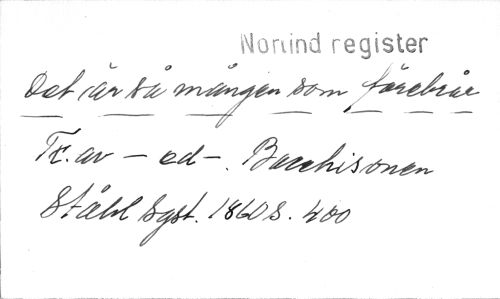 Norlind register
Det är så mången som förebrår
Tr. av — ed —. Bacchisonen
Ståhl Sgst. 1860 s. 400